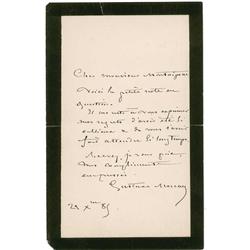 Cher monsieur Montaignac
Voici la petite note en
question.
Il me reste à vous exprimer
mes regrets d'avoir été si
et de vous avoir
fait attendre si longtemps.
Recevez, je vous prie,
mes compliments
empressés.
Gustave Moreau
29 Xre 85